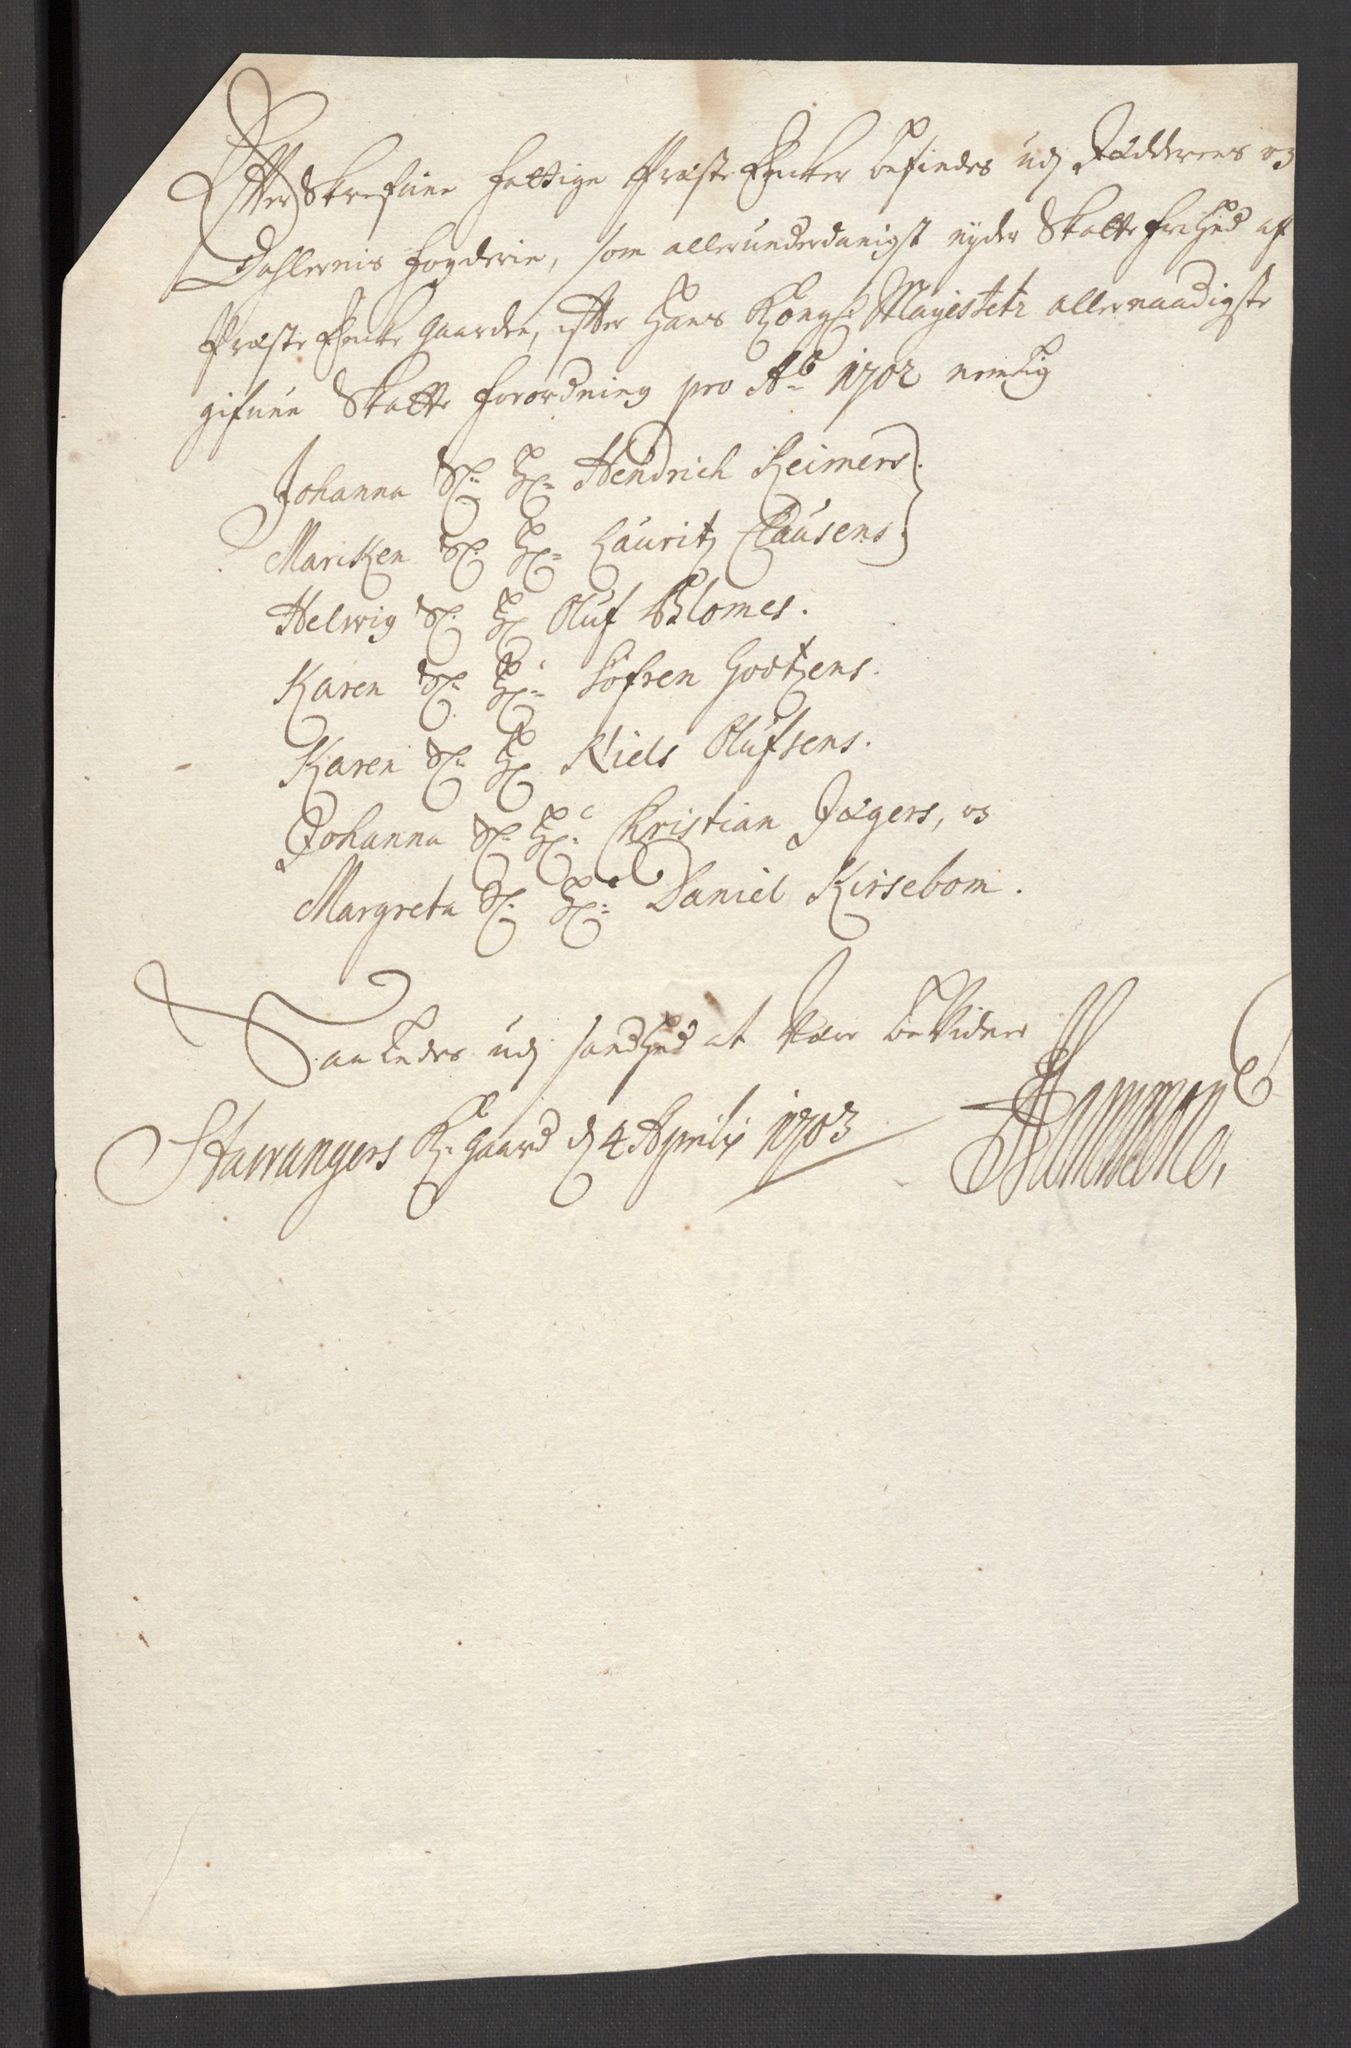 Effter Skrefune fattige Præste Encker befindes udj Jædderens og
Dahlernis fogderie, som allerunderdanigst nyder Skatte frihed af
Præste Encke gaarden, efter Hans Kongl: Mayestetz allernaadigste
gifune Skatte forordning pro Ao 1702 nemlig
Johanna Sl: Hr: Hendrich Reimers.
Mariken Sl: Hr: Lauritz Clausens.
Helwig Sl: Hr Oluf Blomes.
Karen Sl: Hr: Søfren Godtzens.
Karen Sl: Hr Niels Olufsens.
Johanna Sl: Hr: Christian Jægers, og
Margreta Sl: Hr: Daniel Kirsebom.
Saaledes udj sandhed at være bevidner
Stawangers K: gaard d 4 Aprilis 1703